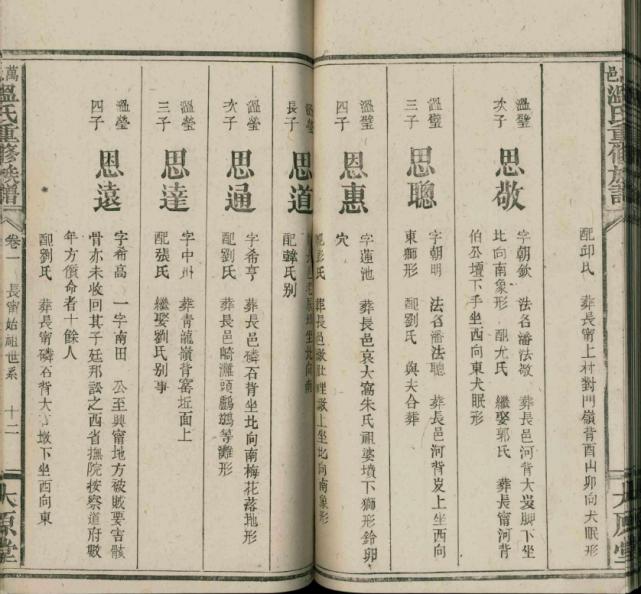 邑溫氏重修族譜
太原堂
配邱氏 葬長甯上村對門嶺背酉山卯向犬眠形
溫璧
次子
思敬
字朝欽 法名潘法敬 葬長邑河背大岌脚下坐
比向南象形 配尤氏 繼娶郭氏 葬長甯河背
伯公壇下手坐西向東犬眠形
溫璧
三子
思聰
字朝明 法名潘法聰 葬長邑河背岌上坐西向
東獅形 配劉氏 與夫合葬
溫璧
四子
恩惠
字蓮池 葬長邑哀大窩朱氏祖婆墳下獅形鈴卯
穴
溫瑩
長子
思道
配彭氏 葬長邑墩肚裡墩上坐北向南象形
配韓氏別
溫瑩
次子
思通
字希亨 葬長邑磷石背坐北向南梅花落地形
配劉氏 葬長邑畸灘頭鸕鷀等灘形
溫瑩
三子
思達
字中州 葬青龍嶺背窰坵面上
配張氏 繼娶劉氏別事
溫瑩
四子
思遠
字希高 一字南田 公至興甯地方被賊要吉骸
骨亦未收回其子廷邦訟之西省撫院按察道府數
年方償命者十餘人
配劉氏 葬長甯磷石背大官墩下坐西向東
萬邑溫氏重修族譜
卷一 長甯始祖世系 十二
太原堂